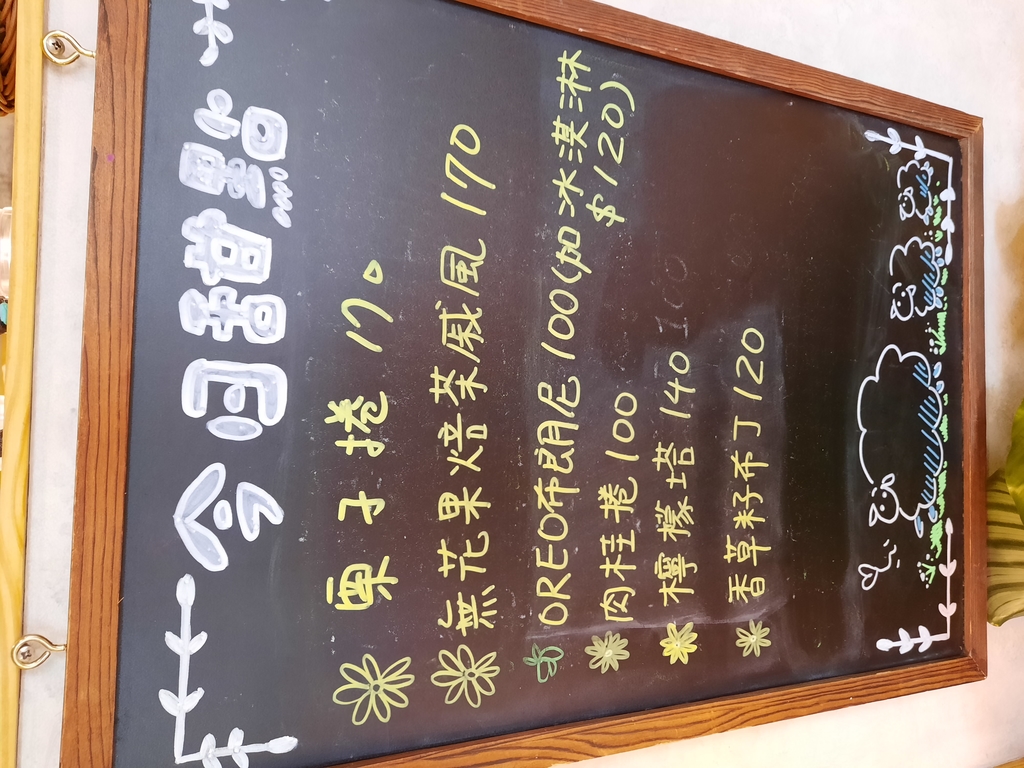 今日甜點
栗子捲 170
無花果焙茶戚風 170
OREO布朗尼 100(加冰淇淋
$120)
肉桂捲 100
檸檬塔 140
香草籽布丁 120